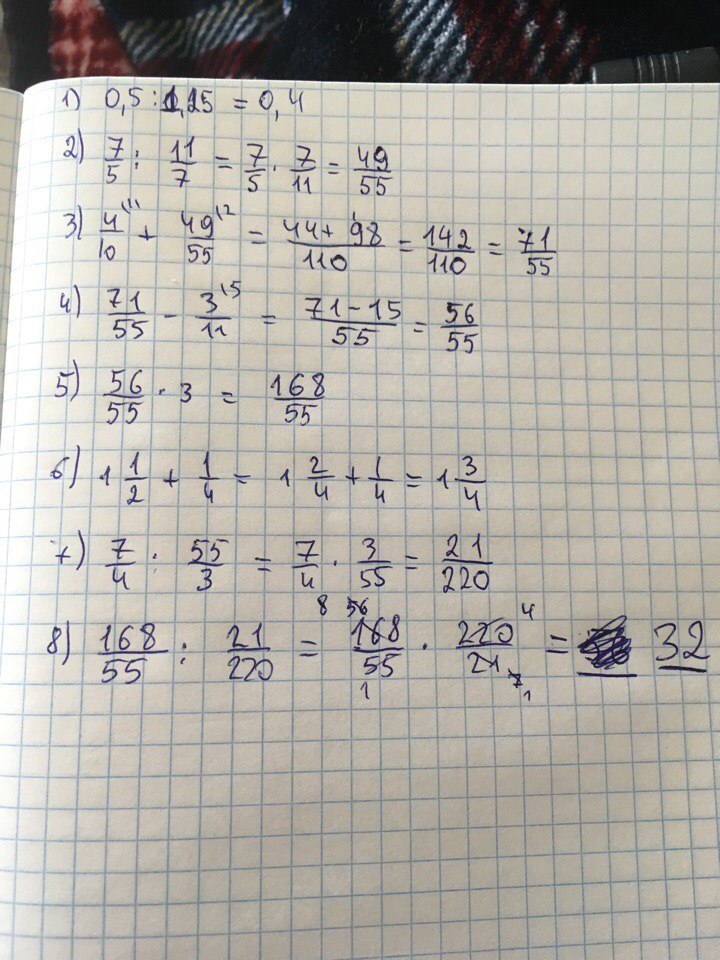 1) 0,5 : 1,25 = 0,4
2) 7/5 : 11/7 = 7/5 · 7/11 = 49/55
3) 4/10 (11 + 49/55 (2 = 44+98/110 = 142/110 = 71/55
4) 71/55 - 3/11 (5 = 71-15/55 = 56/55
5) 56/55 · 3 = 168/55
6) 1 1/2 + 1/4 = 1 2/4 + 1/4 = 1 3/4
7) 7/4 : 55/3 = 7/4 · 3/55 = 21/220
8) 168/55 : 21/220 = 8 56 168/55 1 · 220 4/21 7 1 = 32